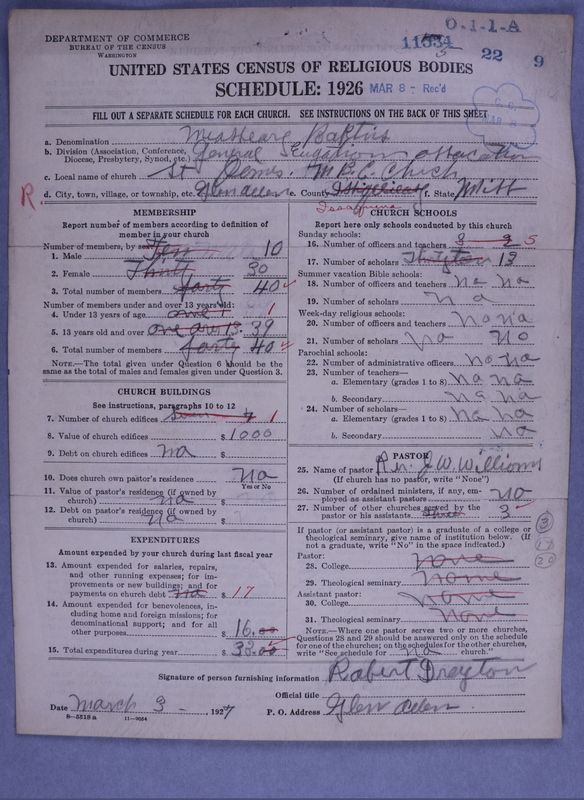 O-1-1-A
DEPARTMENT OF COMMERCE
BUREAU OF THE CENSUS
WASHINGTON
22 9
UNITED STATES CENSUS OF RELIGIOUS BODIES
SCHEDULE: 1926 MAR 8 - Rec'd
FILL OUT A SEPARATE SCHEDULE FOR EACH CHURCH. SEE INSTRUCTIONS ON THE BACK OF THIS SHEET
a. Denomination Baptis
b. Division (Association, Conference,
Diocese, Presbytery, Synod, etc.) General
c. Local name of church St M.B.C. Chirch
R d. City, town, village, or township, etc. Glenallen e. County f. State Mitt
Issaquena
MEMBERSHIP
Report number of members according to definition of
member in your church
Number of members, by sex:
1. Male 10
2. Female 30
3. Total number of members forty 40
Number of members under and over 13 years old:
4. Under 13 years of age one 1 1
5. 13 years old and over 39
6. Total number of members forty 40
NOTE.—The total given under Question 6 should be the
same as the total of males and females given under Question 3.
CHURCH BUILDINGS
See instructions, paragraphs 10 to 12
7. Number of church edifices 1
8. Value of church edifices $ 1000
9. Debt on church edifices na $
10. Does church own pastor's residence? na
Yes or No
11. Value of pastor's residence (if owned by
church) na $
12. Debt on pastor's residence (if owned by
church) na $
EXPENDITURES
Amount expended by your church during last fiscal year
13. Amount expended for salaries, repairs,
and other running expenses; for im-
provements or new buildings; and for
payments on church debt $ 17
14. Amount expended for benevolences, in-
cluding home and foreign missions; for
denominational support; and for all
other purposes $ 16.00
15. Total expenditures during year $ 33.00
CHURCH SCHOOLS
Report here only schools conducted by this church
Sunday schools:
16. Number of officers and teachers 5
17. Number of scholars 13
Summer vacation Bible schools:
18. Number of officers and teachers na na
19. Number of scholars n a
Week-day religious schools:
20. Number of officers and teachers no na
21. Number of scholars na no
Parochial schools:
22. Number of administrative officers no na
23. Number of teachers—
a. Elementary (grades 1 to 8) na na
b. Secondary na na
24. Number of scholars—
a. Elementary (grades 1 to 8) na na
b. Secondary na
PASTOR
25. Name of pastor Rev. J. W. Williams
(If church has no pastor, write "None")
26. Number of ordained ministers, if any, em-
ployed as assistant pastors no
27. Number of other churches served by the
pastor or his assistants three 3
If pastor (or assistant pastor) is a graduate of a college or
theological seminary, give name of institution below. (If
not a graduate, write "No" in the space indicated.)
Pastor:
28. College none
29. Theological seminary none
Assistant pastor:
30. College none
31. Theological seminary none
NOTE.—Where one pastor serves two or more churches,
Questions 28 and 29 should be answered only on the schedule
for one of the churches; on the schedules for the other churches,
write "See schedule for na church."
Signature of person furnishing information Robert Drayton
Official title
Date March 3 - , 1927 P. O. Address Glen allen
8-5318 a 11-9054